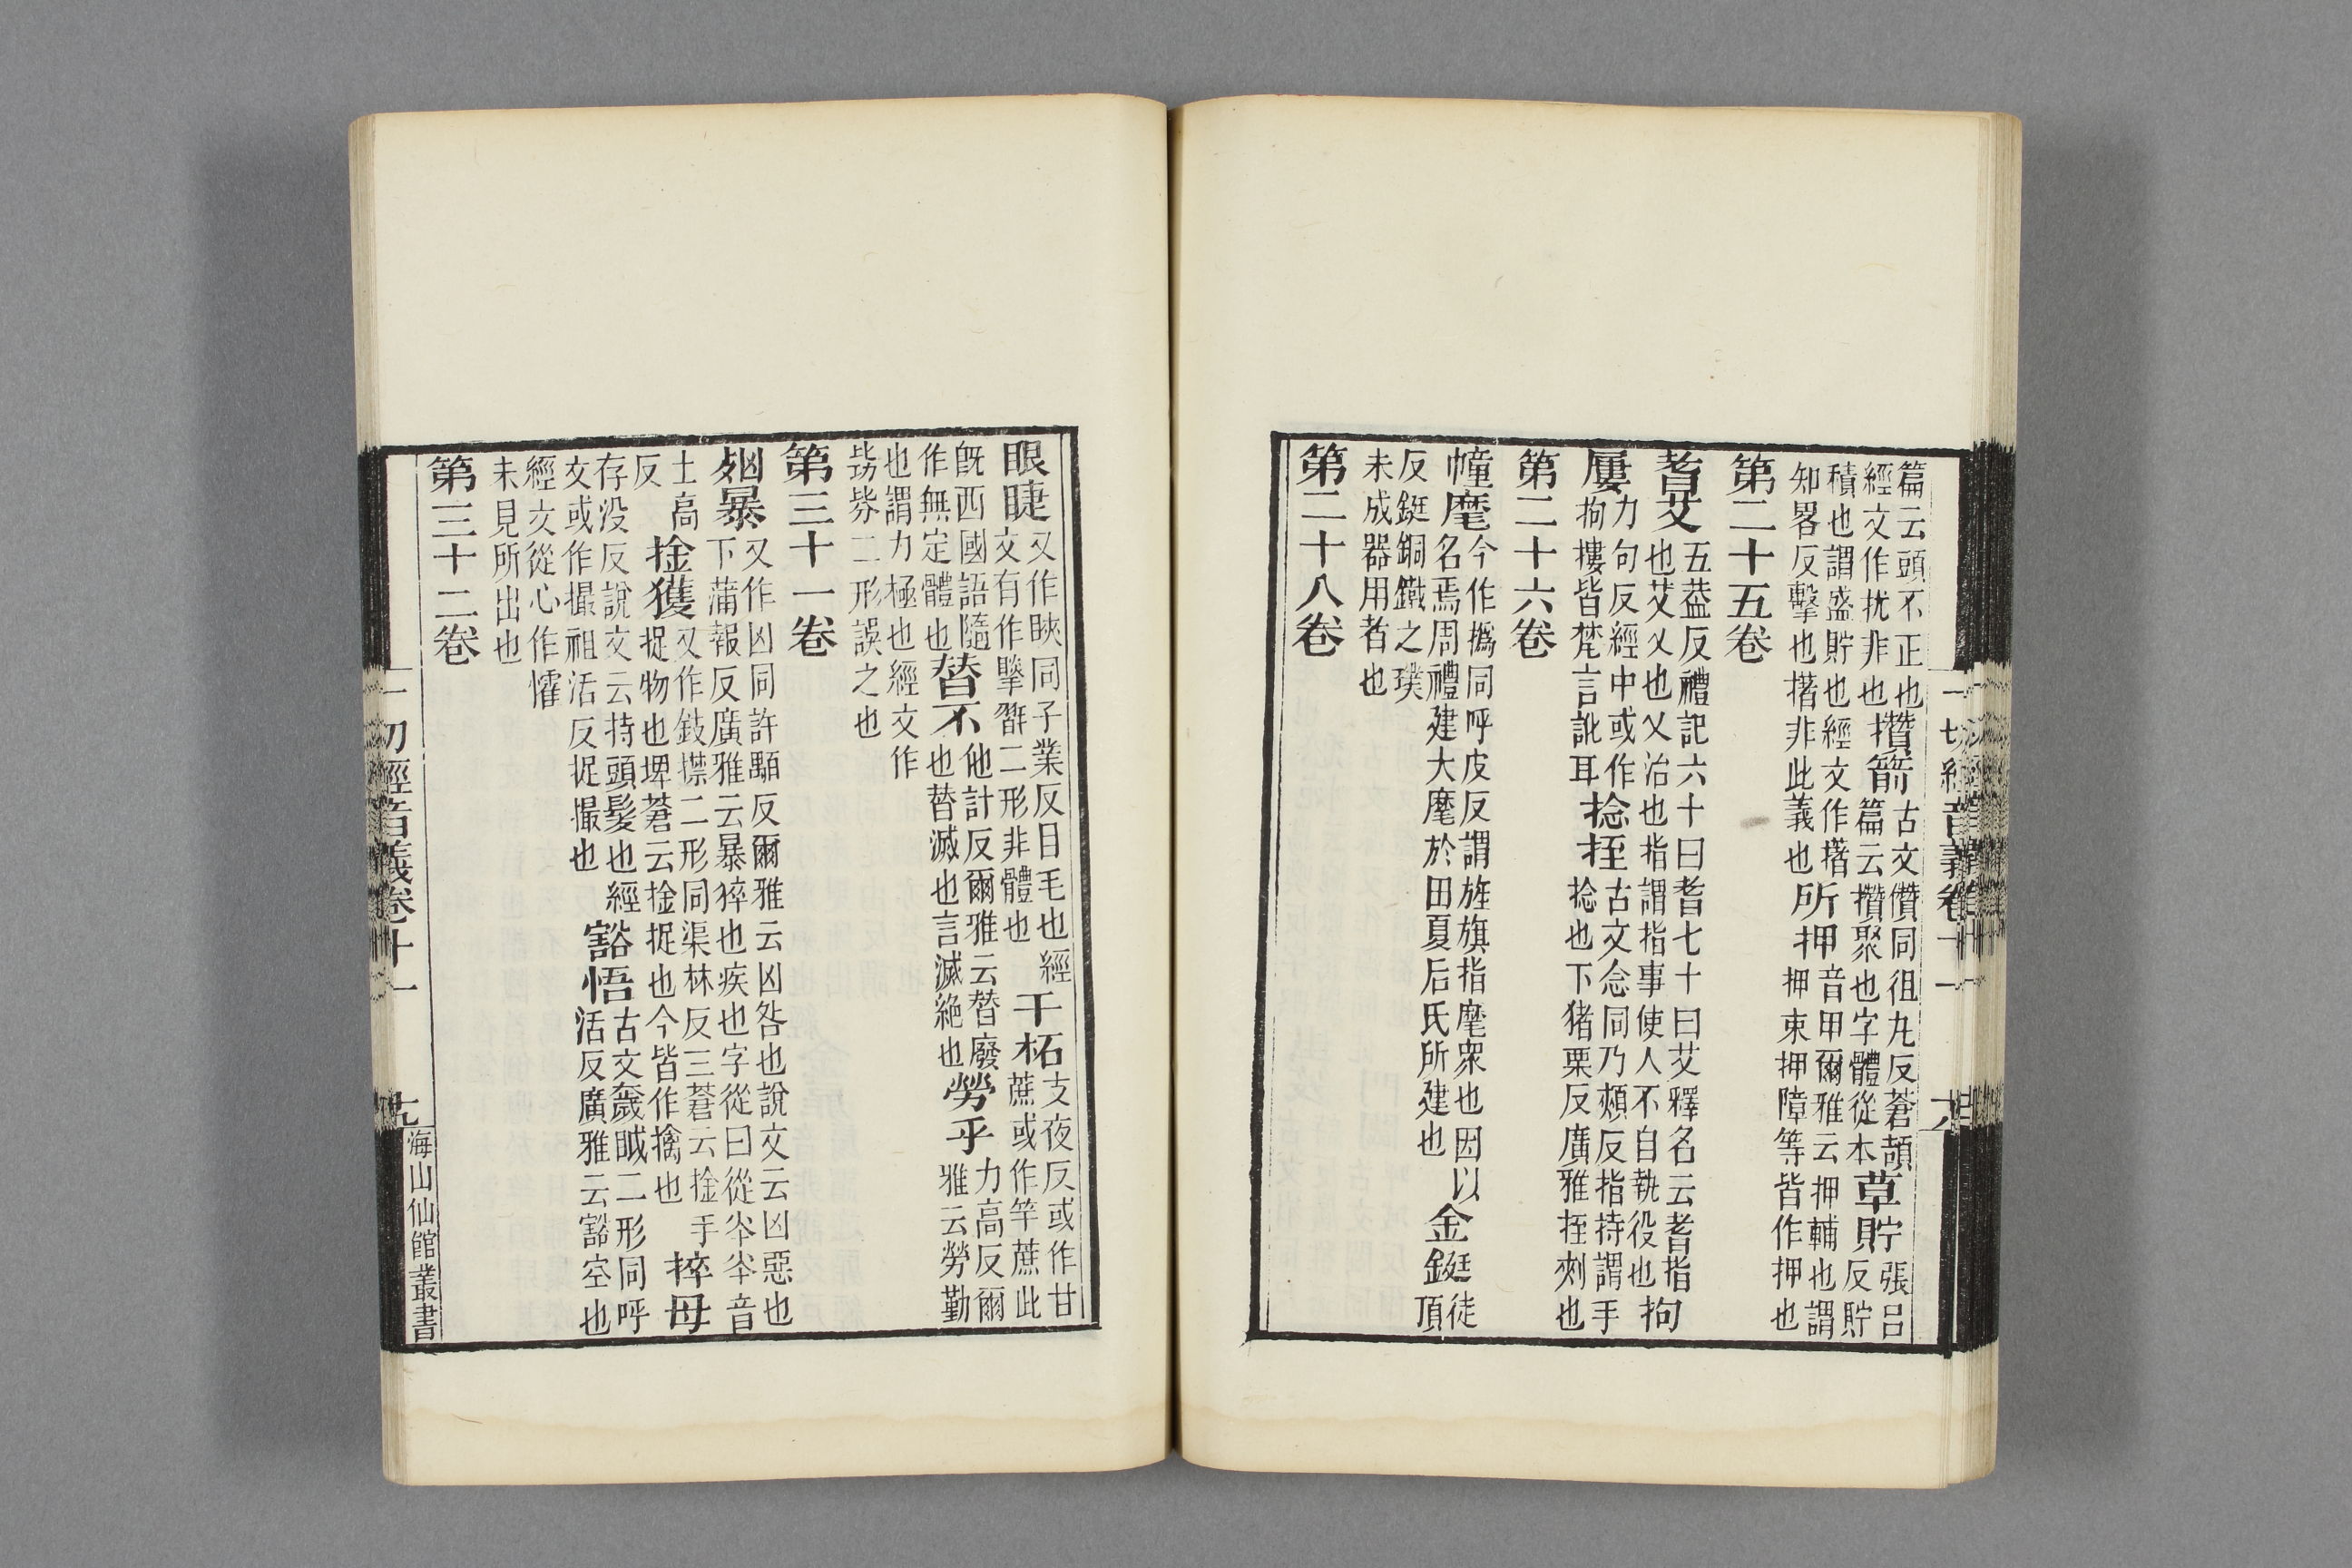 一切經音義卷十一
篇云頭不正也
經文作扰非也
攢箭
古文儹同徂丸反蒼頡
篇云攢聚也字體從本
草貯
張呂
反貯
積也謂盛貯也經文作
知畧反擊也撦非此義也
所押
音甲爾雅云押輔也謂
押束押障等皆作押也
第二十五卷
耆艾
五葢反禮記六十曰耆七十曰艾釋名云耆指
也艾乂也乂治也指謂指事使人不自執役也
拘
屢
力句反經中或作
拘摟皆梵言訛耳
捻挃
古文念同乃頰反指持謂手
捻也下猪栗反廣雅挃刺也
第二十六卷
幢麾
今作撝同呼皮反謂旌旗指麾衆也因以
名焉周禮建大麾於田夏后氏所建也
金鋌
徒
頂
反鋌銅鐵之璞
未成器用者也
第二十八卷
眼睫
又作䀹同子業反目毛也經
文有作二形非體也
干柘
支夜反或作甘
蔗或作竿蔗此
旣西國語隨
作無定體也
替不
他計反爾雅云替廢
也替滅也言滅絶也
勞乎
力高反爾
雅云勞勤
也謂力極也經文作
二形誤之也
第三十一卷
暴
又作凶同許顒反爾雅云凶咎也說文云凶惡也
下蒲報反廣雅云暴猝也疾也字從曰從夲夲音
土高
反
捦獲
又作二形同渠林反三蒼云捦手
捉物也埤蒼云捦捉也今皆作擒也
捽母
存没反說文云持頭髮也經
文或作撮祖活反捉撮也
豁悟
古文奯二形同呼
活反廣雅云豁空也
經文從心作懽
未見所出也
第三十二卷
一切經音義卷十一
九
海山仙館叢書